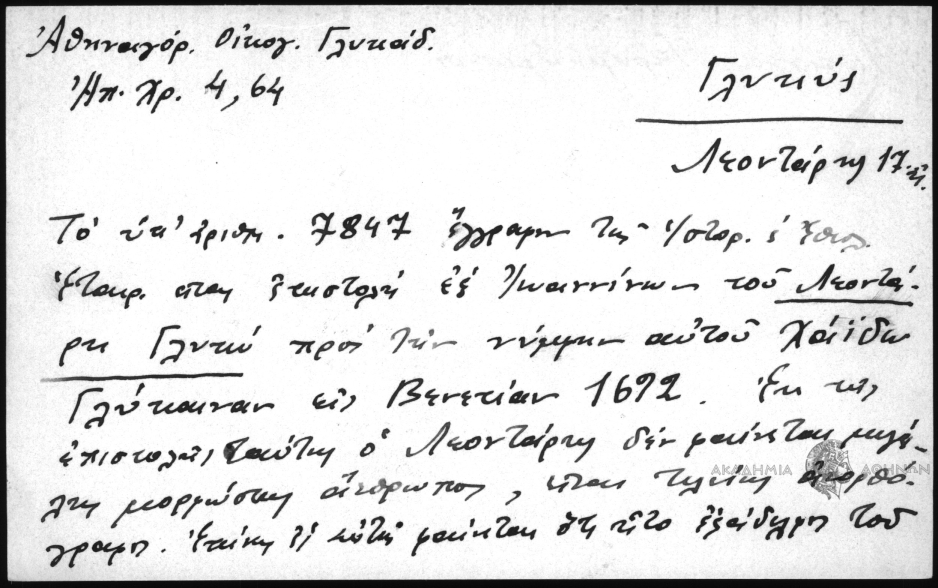 Ἀθηναγόρ. Οἰκογ. Γλυκάδ.
Ἠπ. Χρ. 4, 64
Γλυκύς
Λεοντάρης 17
Τό ὑπ' ἀριθμ. 7847 ἔγγραφον τῆς Ἱστορ. & Ἐθνολ.
Ἑταιρ. εἶναι ἐπιστολή ἐξ Ἰωαννίνων τοῦ Λεοντά-
ρη Γλυκύ πρός τήν νύμφην αὐτοῦ Χάιδω
Γλύκαιναν εἰς Βενετίαν 1692. Ἐκ τῆς
ἐπιστολῆς ταύτης ὁ Λεοντάρης δέν φαίνεται μεγά-
λης μορφώσεως ἄνθρωπος, εἶναι τελείως ἀνορθό-
γραφος. Ἐπίσης ἐξ αὐτῆς φαίνεται ὅτι ἦτο ἐξάδελφος τοῦ
ΑΚΑΔΗΜΙΑ ΑΘΗΝΩΝ